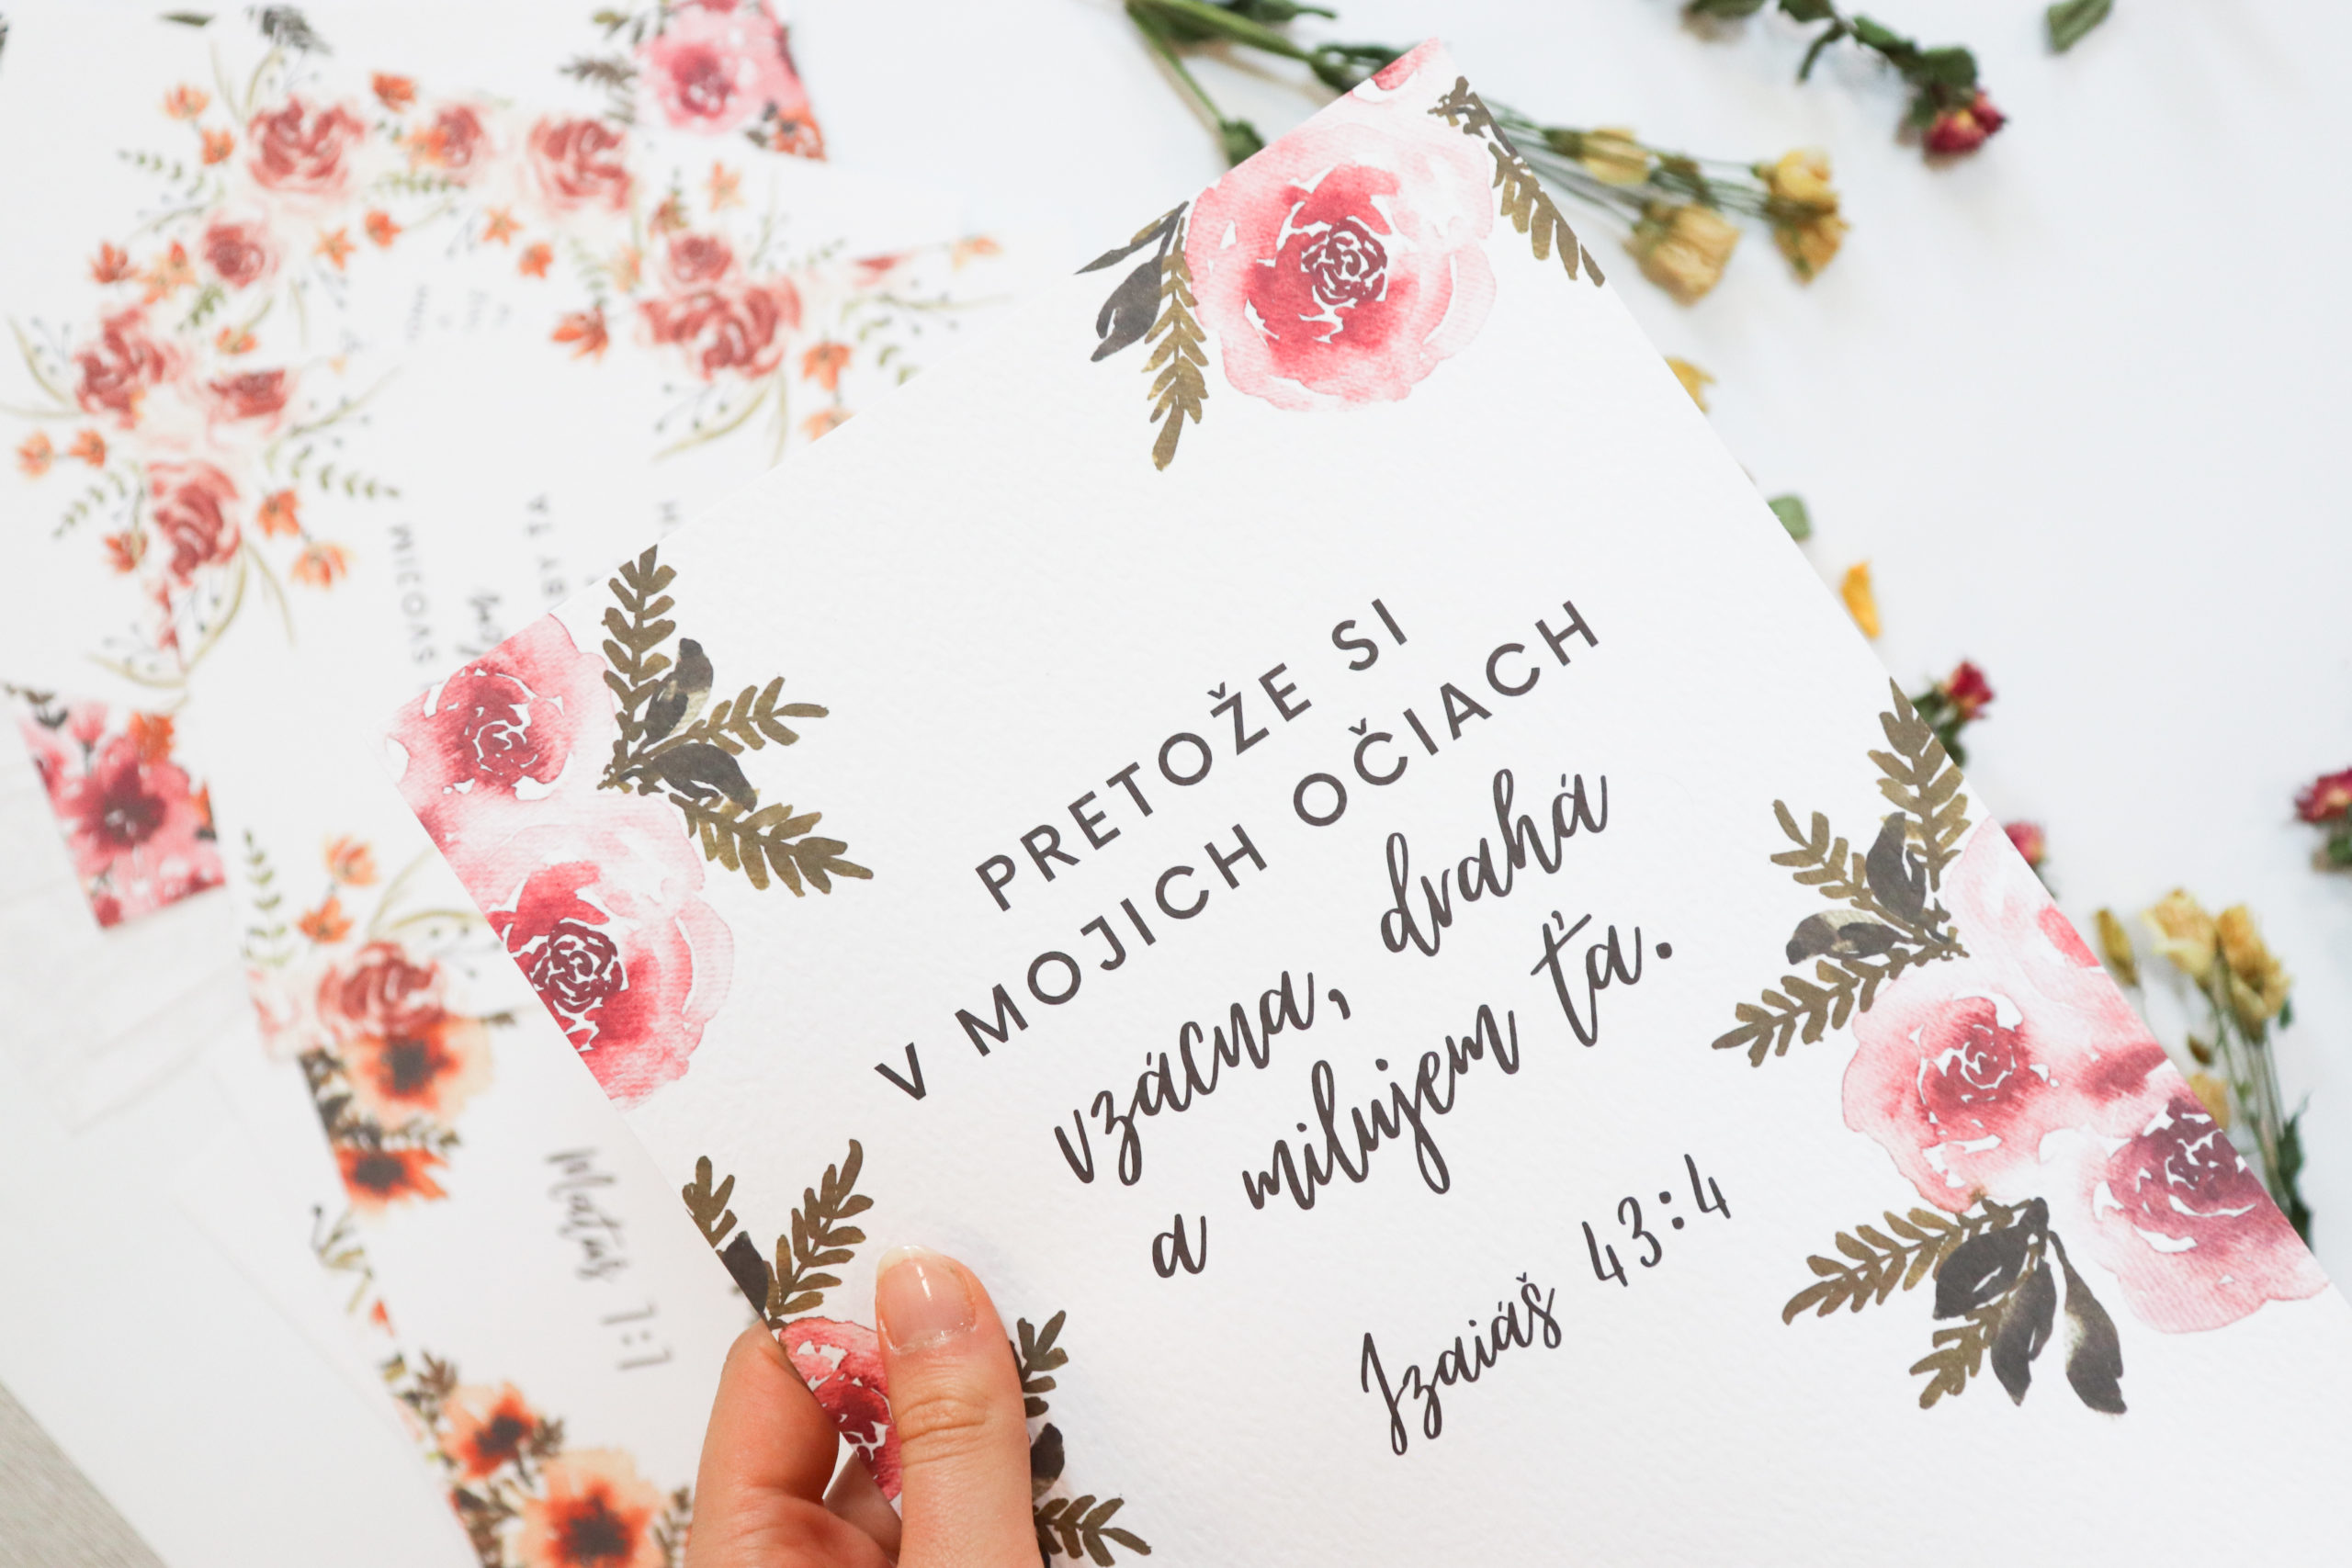 PRETOŽE SI
V MOJICH OČIACH
vzácna, drahá
a milujem ťa.
Izaiáš 43:4